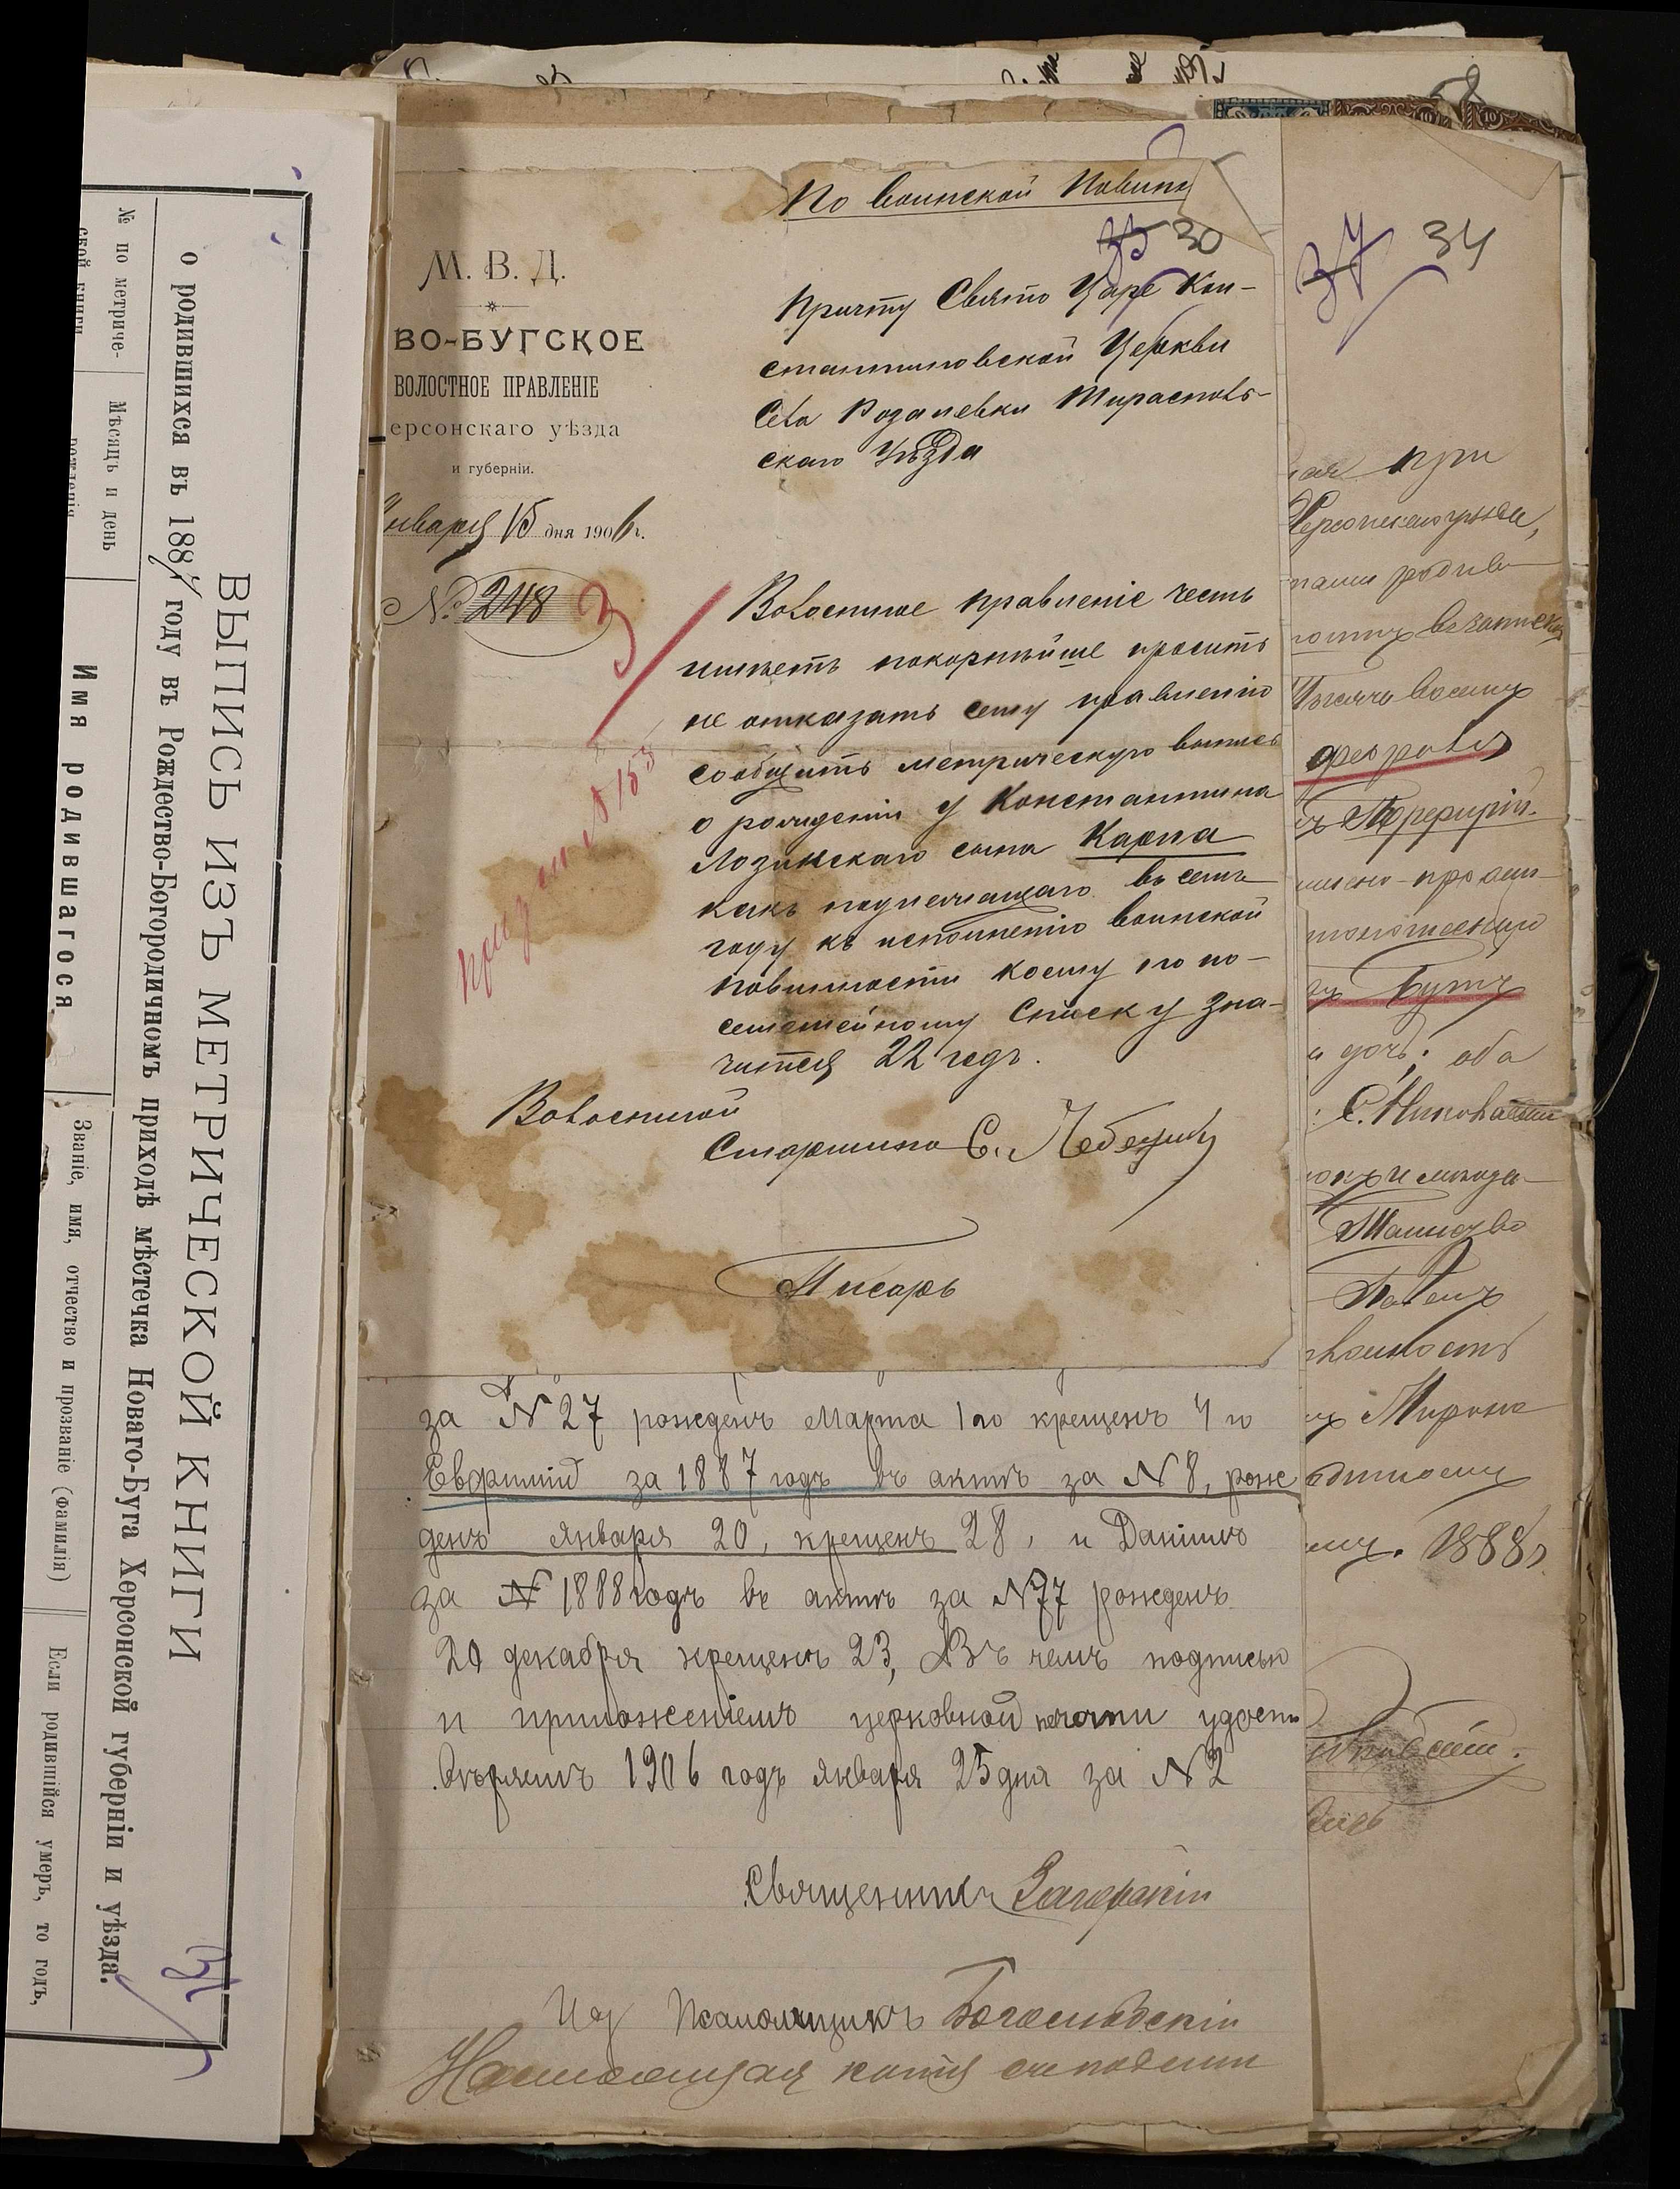 ВЫПИСЬ ИЗЪ МЕТРИЧЕСКОЙ КНИГИ
о родившихся въ 188 году въ Рождество-Богородичномъ приходѣ мѣстечка Новаго-Буга Херсонской губерніи и уѣзда.
№ по метриче-
ской книгѣ
Мѣсяцъ и день
рожденія
Имя родившагося
Званіе, имя, отчество и прозваніе (фамилія)
Если родившійся умеръ, то годъ,
По воинской Повин
33 30
М. В. Д.
ВО-БУГСКОЕ
ВОЛОСТНОЕ ПРАВЛЕНІЕ
ерсонскаго уѣзда
и губерніи.
Января 15 дня 1906 г.
№ 248
3
Причту Свято Царе Кон-
стантиновской Церкви
Села Розалевки Тирасполь-
скаго Уѣзда
Волостное правленіе честь
имѣетъ покорнѣйше просить
не отказать сему правленію
сообщить метрическую выпись
о рожденіи у Константина
Лозинскаго сына Карпа
какъ подлежащаго въ семъ
году къ исполненію воинской
повинности коему по по-
семейному списку зна-
чится 22 годъ.
Волостной
Старшина С. Лебедин
Писарь
за № 27 рожденъ Марта 1го крещенъ 4го
Евфимій за 1887 годъ въ актѣ за № 8, рож
денъ Января 20, крещенъ 28, и Даніилъ
за № 1888 годъ въ актѣ за № 77 рожденъ
20 декабря крещенъ 23, Въ чемъ подписью
и приложеніемъ церковной печати удосто
вѣряемъ 1906 годъ Января 25 дня за № 2
Священникъ Загорскій
Псаломщикъ Богословскій
37 34
ая при
паши родив
Тысяча восемь
февраля
Порфирій
Бутъ
и дочь; оба
Таинство
Павелъ
1888